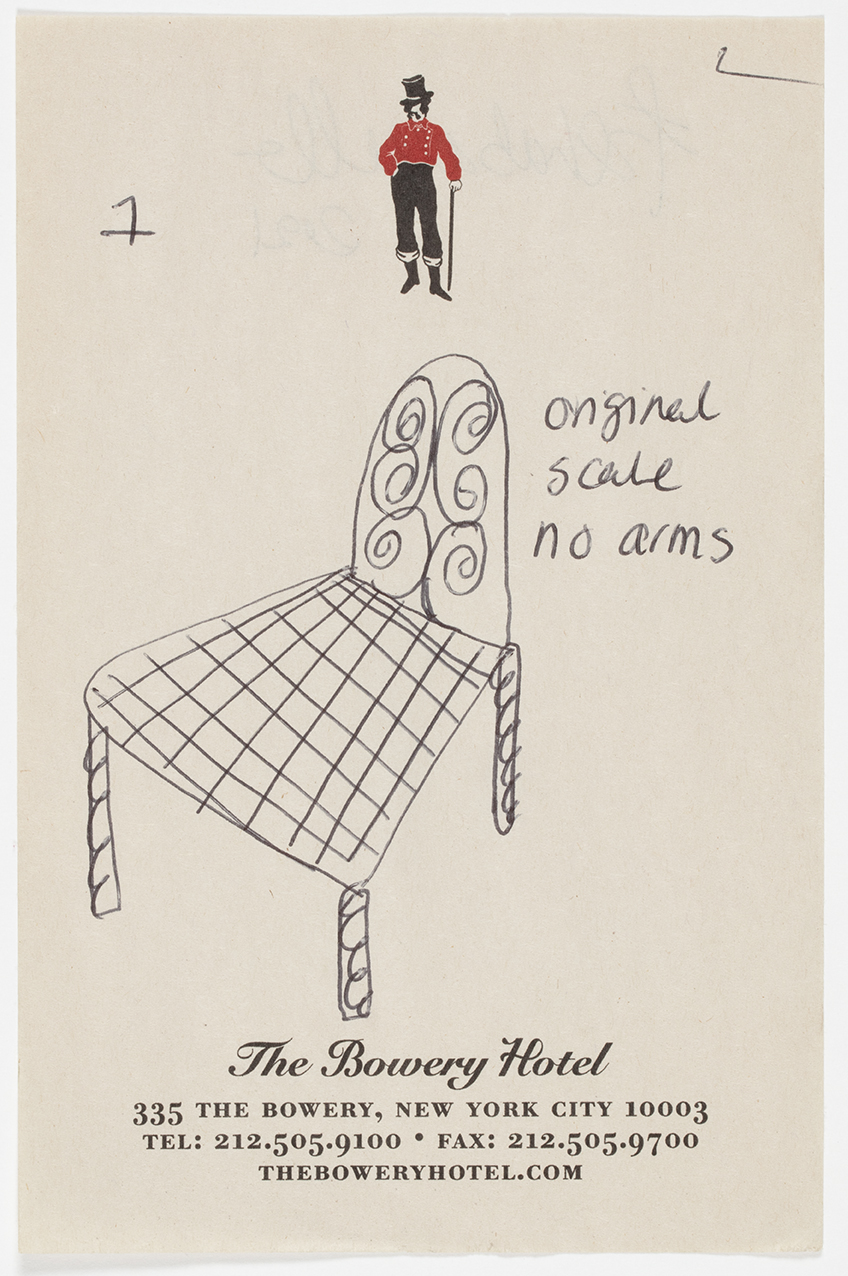 1
original
scale
no arms
The Bowery Hotel
335 THE BOWERY, NEW YORK CITY 10003
TEL: 212.505.9100 • FAX: 212.505.9700
THEBOWERYHOTEL.COM